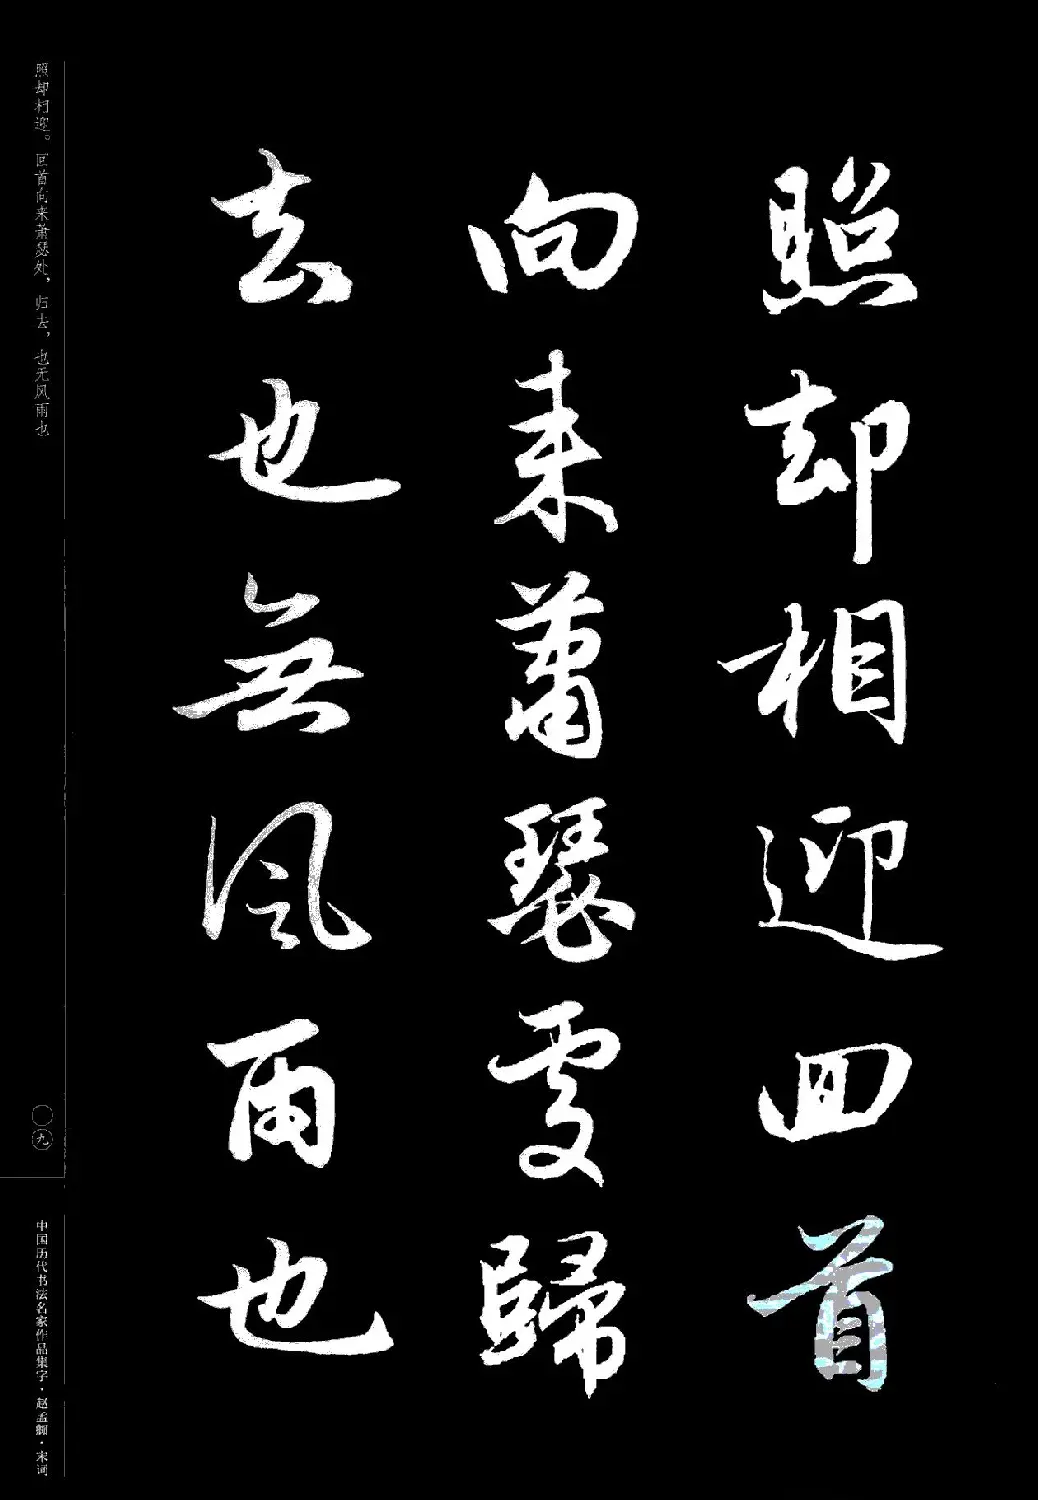 照却相迎回首
向来萧瑟處歸
去也無风雨也
照却相迎。回首向来萧瑟处，归去，也无风雨也
〇九
中国历代书法名家作品集字·赵孟頫·宋词